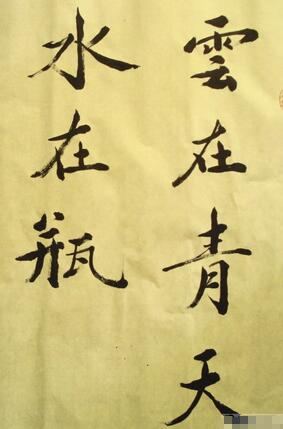 雲在青天
水在瓶